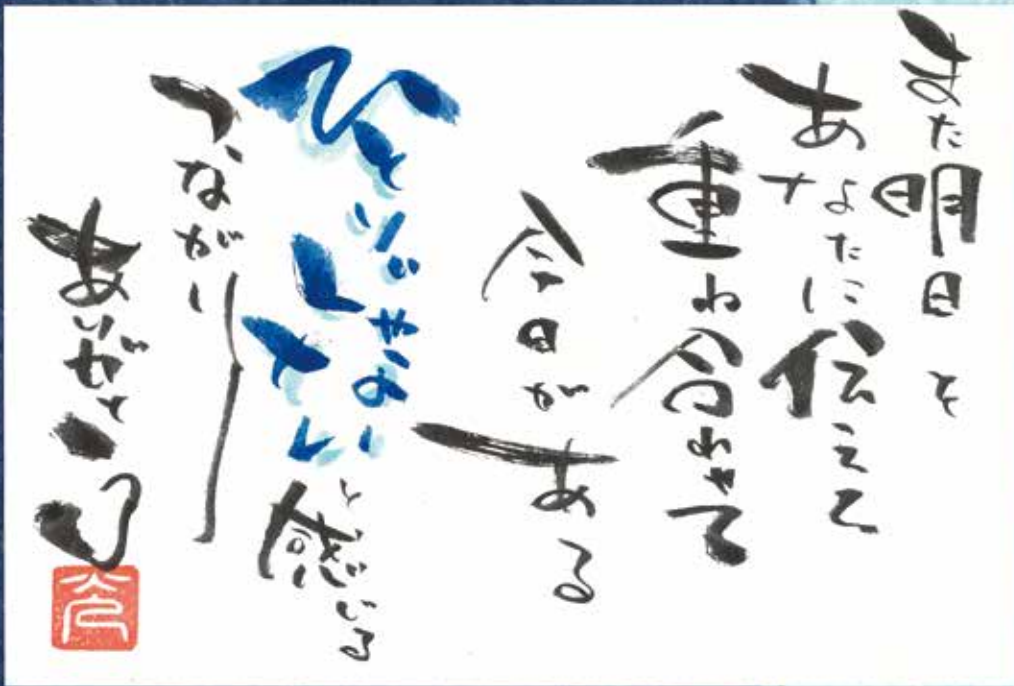 また明日と
あなたに伝えて
重ね合わせて
今日がある
ひとりじゃない
と感じる
つながり
ありがとう
光